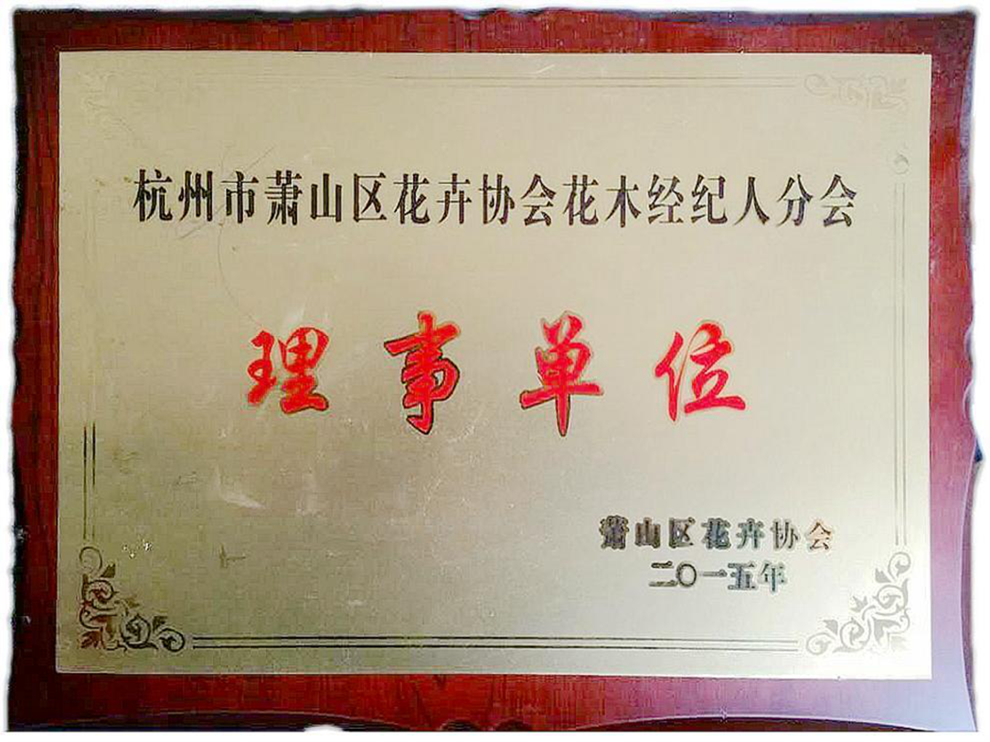 杭州市萧山区花卉协会花木经纪人分会
理事单位
萧山区花卉协会
二〇一五年